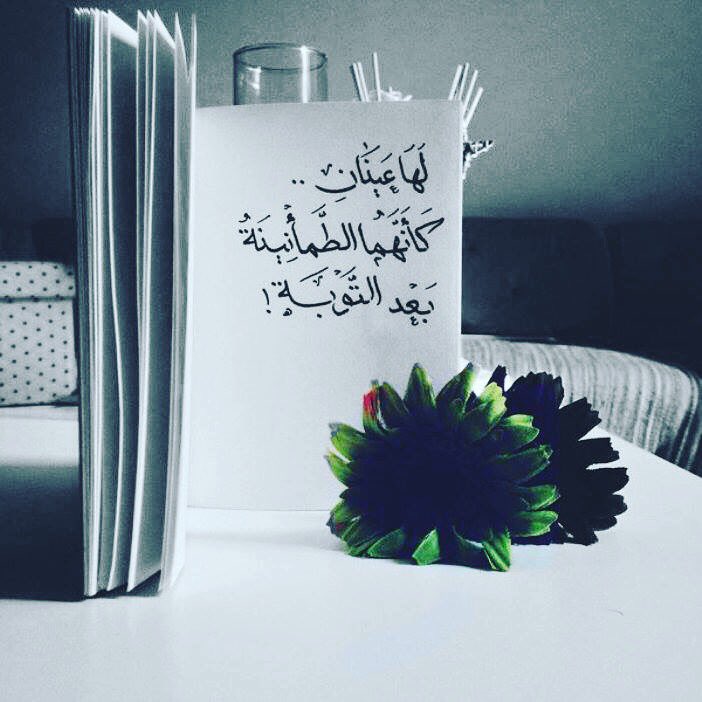 لَهَا عَينَانِ ..
كَأَنَّهُمَا الطَّمَأْنِينَةُ
بَعْد التَّوْبَةِ !